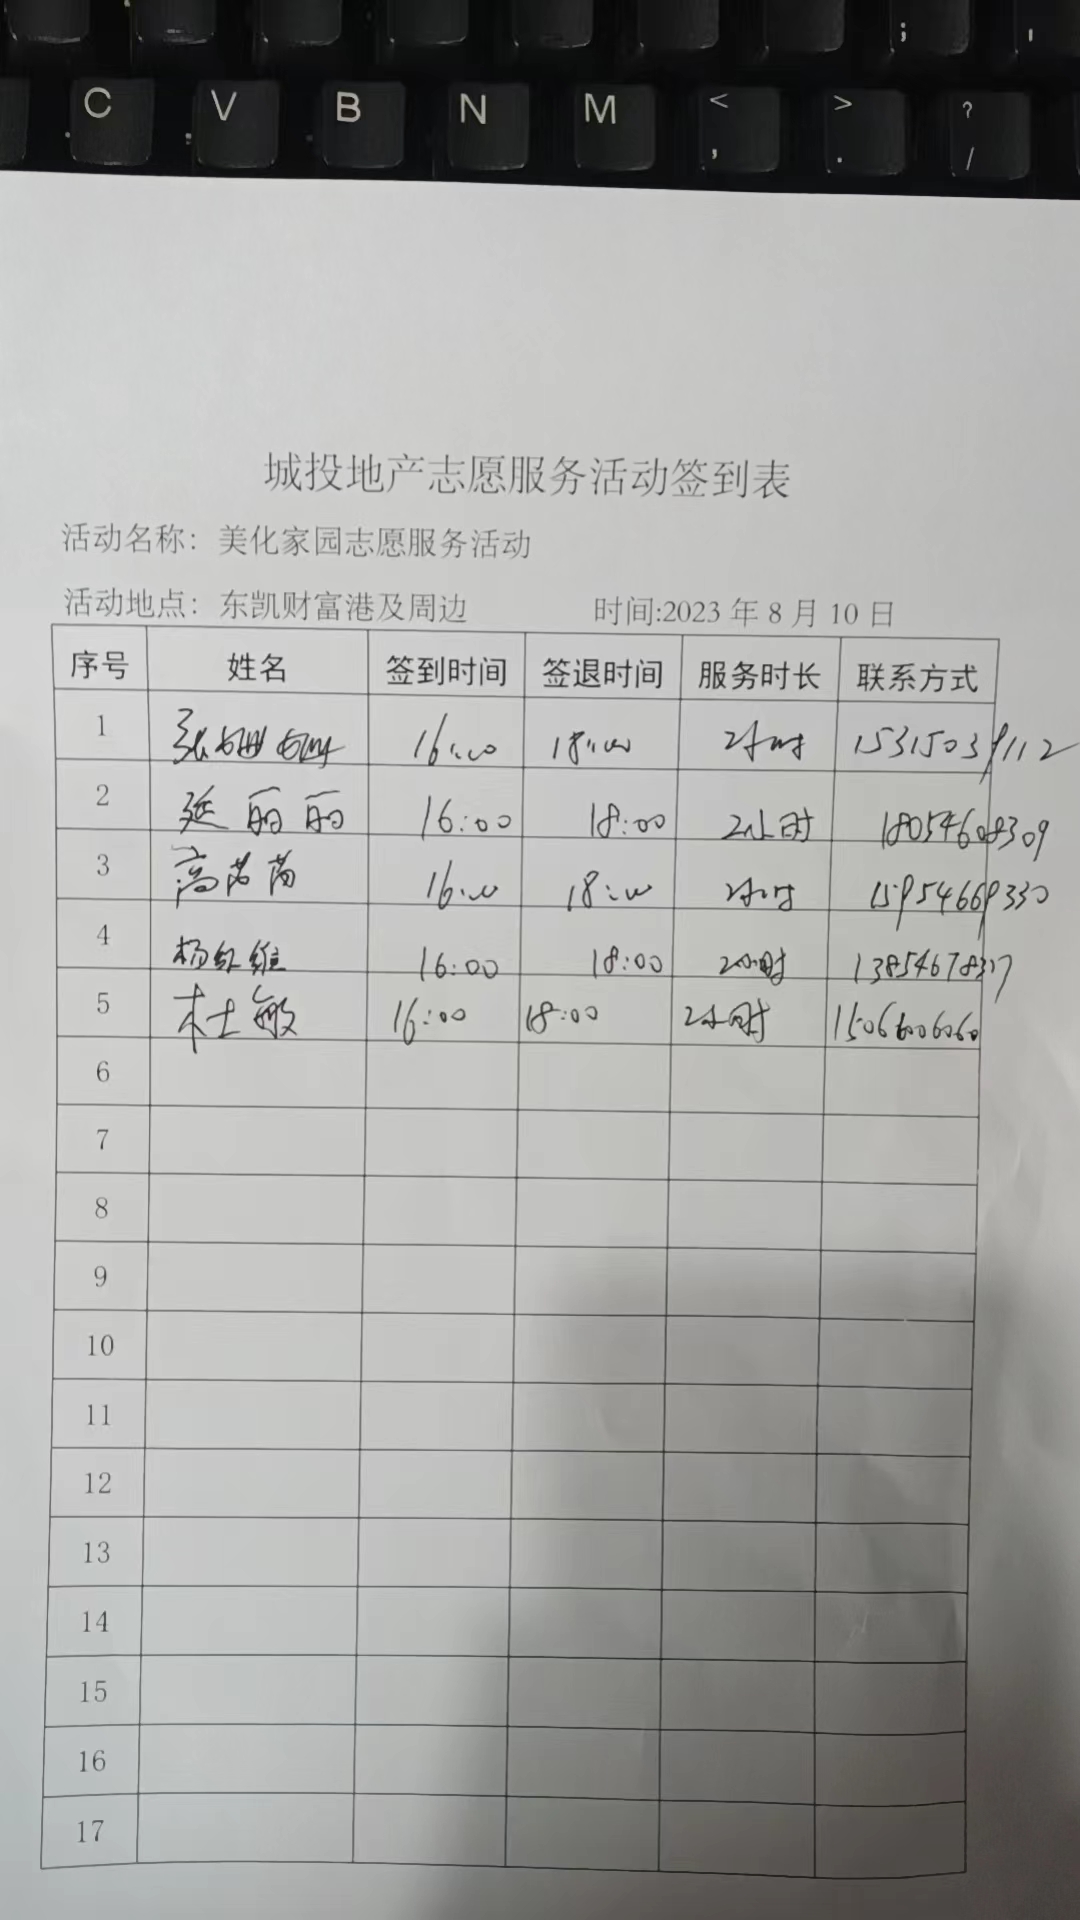 C V B N M < > ?
; , . /
城投地产志愿服务活动签到表
活动名称：美化家园志愿服务活动
活动地点：东凯财富港及周边 时间:2023 年 8 月 10 日
序号 姓名 签到时间 签退时间 服务时长 联系方式
1 张 16:00 18:00 2小时 15315039112
2 延丽丽 16:00 18:00 2小时 18054608309
3 高 16:00 18:00 2小时 15954669330
4 杨红维 16:00 18:00 2小时
5 士敏 16:00 18:00 2小时 15066006060
6
7
8
9
10
11
12
13
14
15
16
17